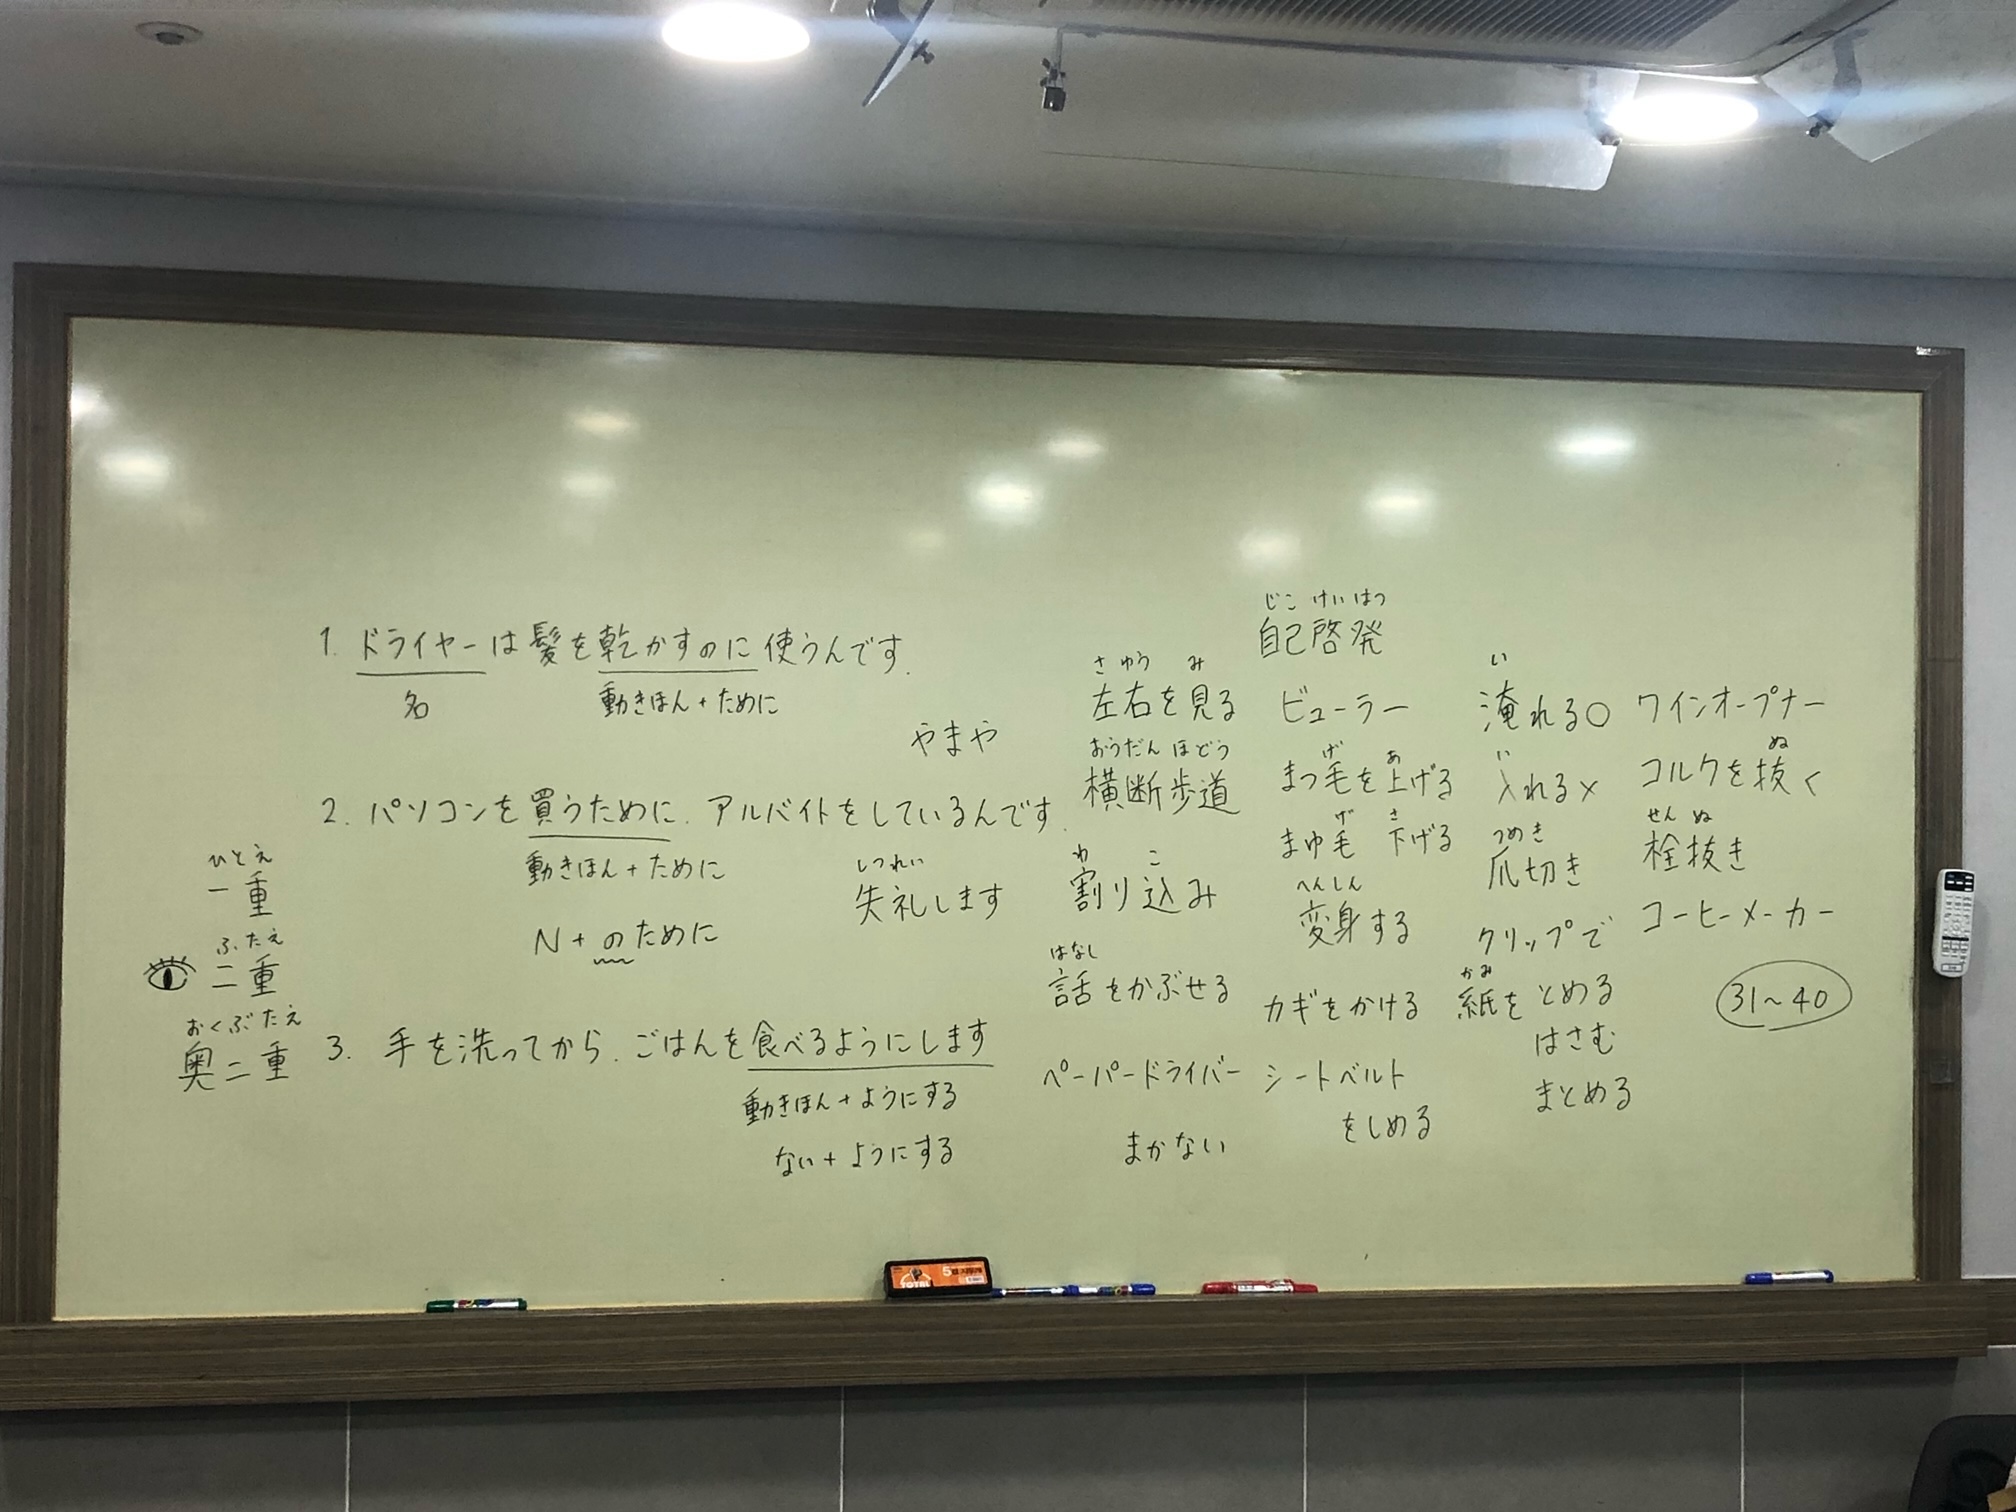 1. ドライヤーは髪を乾かすのに使うんです.
名
動きほん+ために
やまや
2. パソコンを買うために. アルバイトをしているんです.
動きほん+ために
N+のために
しつれい
失礼します
3. 手を洗ってから. ごはんを食べるようにします
動きほん+ようにする
ない+ようにする
ひとえ
一重
ふたえ
二重
おくぶたえ
奥二重
さゆう み
左右を見る
おうだんほどう
横断歩道
わ こ
割り込み
はなし
話をかぶせる
ペーパードライバー
まかない
じこけいはつ
自己啓発
ビューラー
げ あ
まつ毛を上げる
げ さ
まゆ毛 下げる
へんしん
変身する
カギをかける
シートベルト
をしめる
い
淹れる○
い
入れる×
つめき
爪切き
クリップで
かみ
紙をとめる
はさむ
まとめる
ワインオープナー
ぬ
コルクを抜く
せんぬ
栓抜き
コーヒーメーカー
31~40
TOTAL